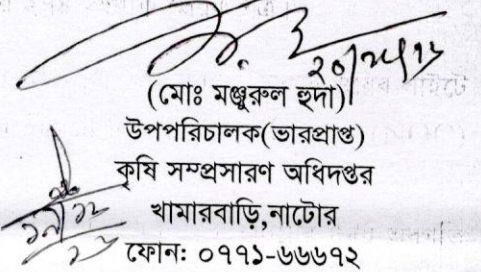 (মোঃ মঞ্জুরুল হুদা)
উপপরিচালক(ভারপ্রাপ্ত)
কৃষি সম্প্রসারণ অধিদপ্তর
খামারবাড়ি,নাটোর
ফোন: ০৭৭১-৬৬৬৭২